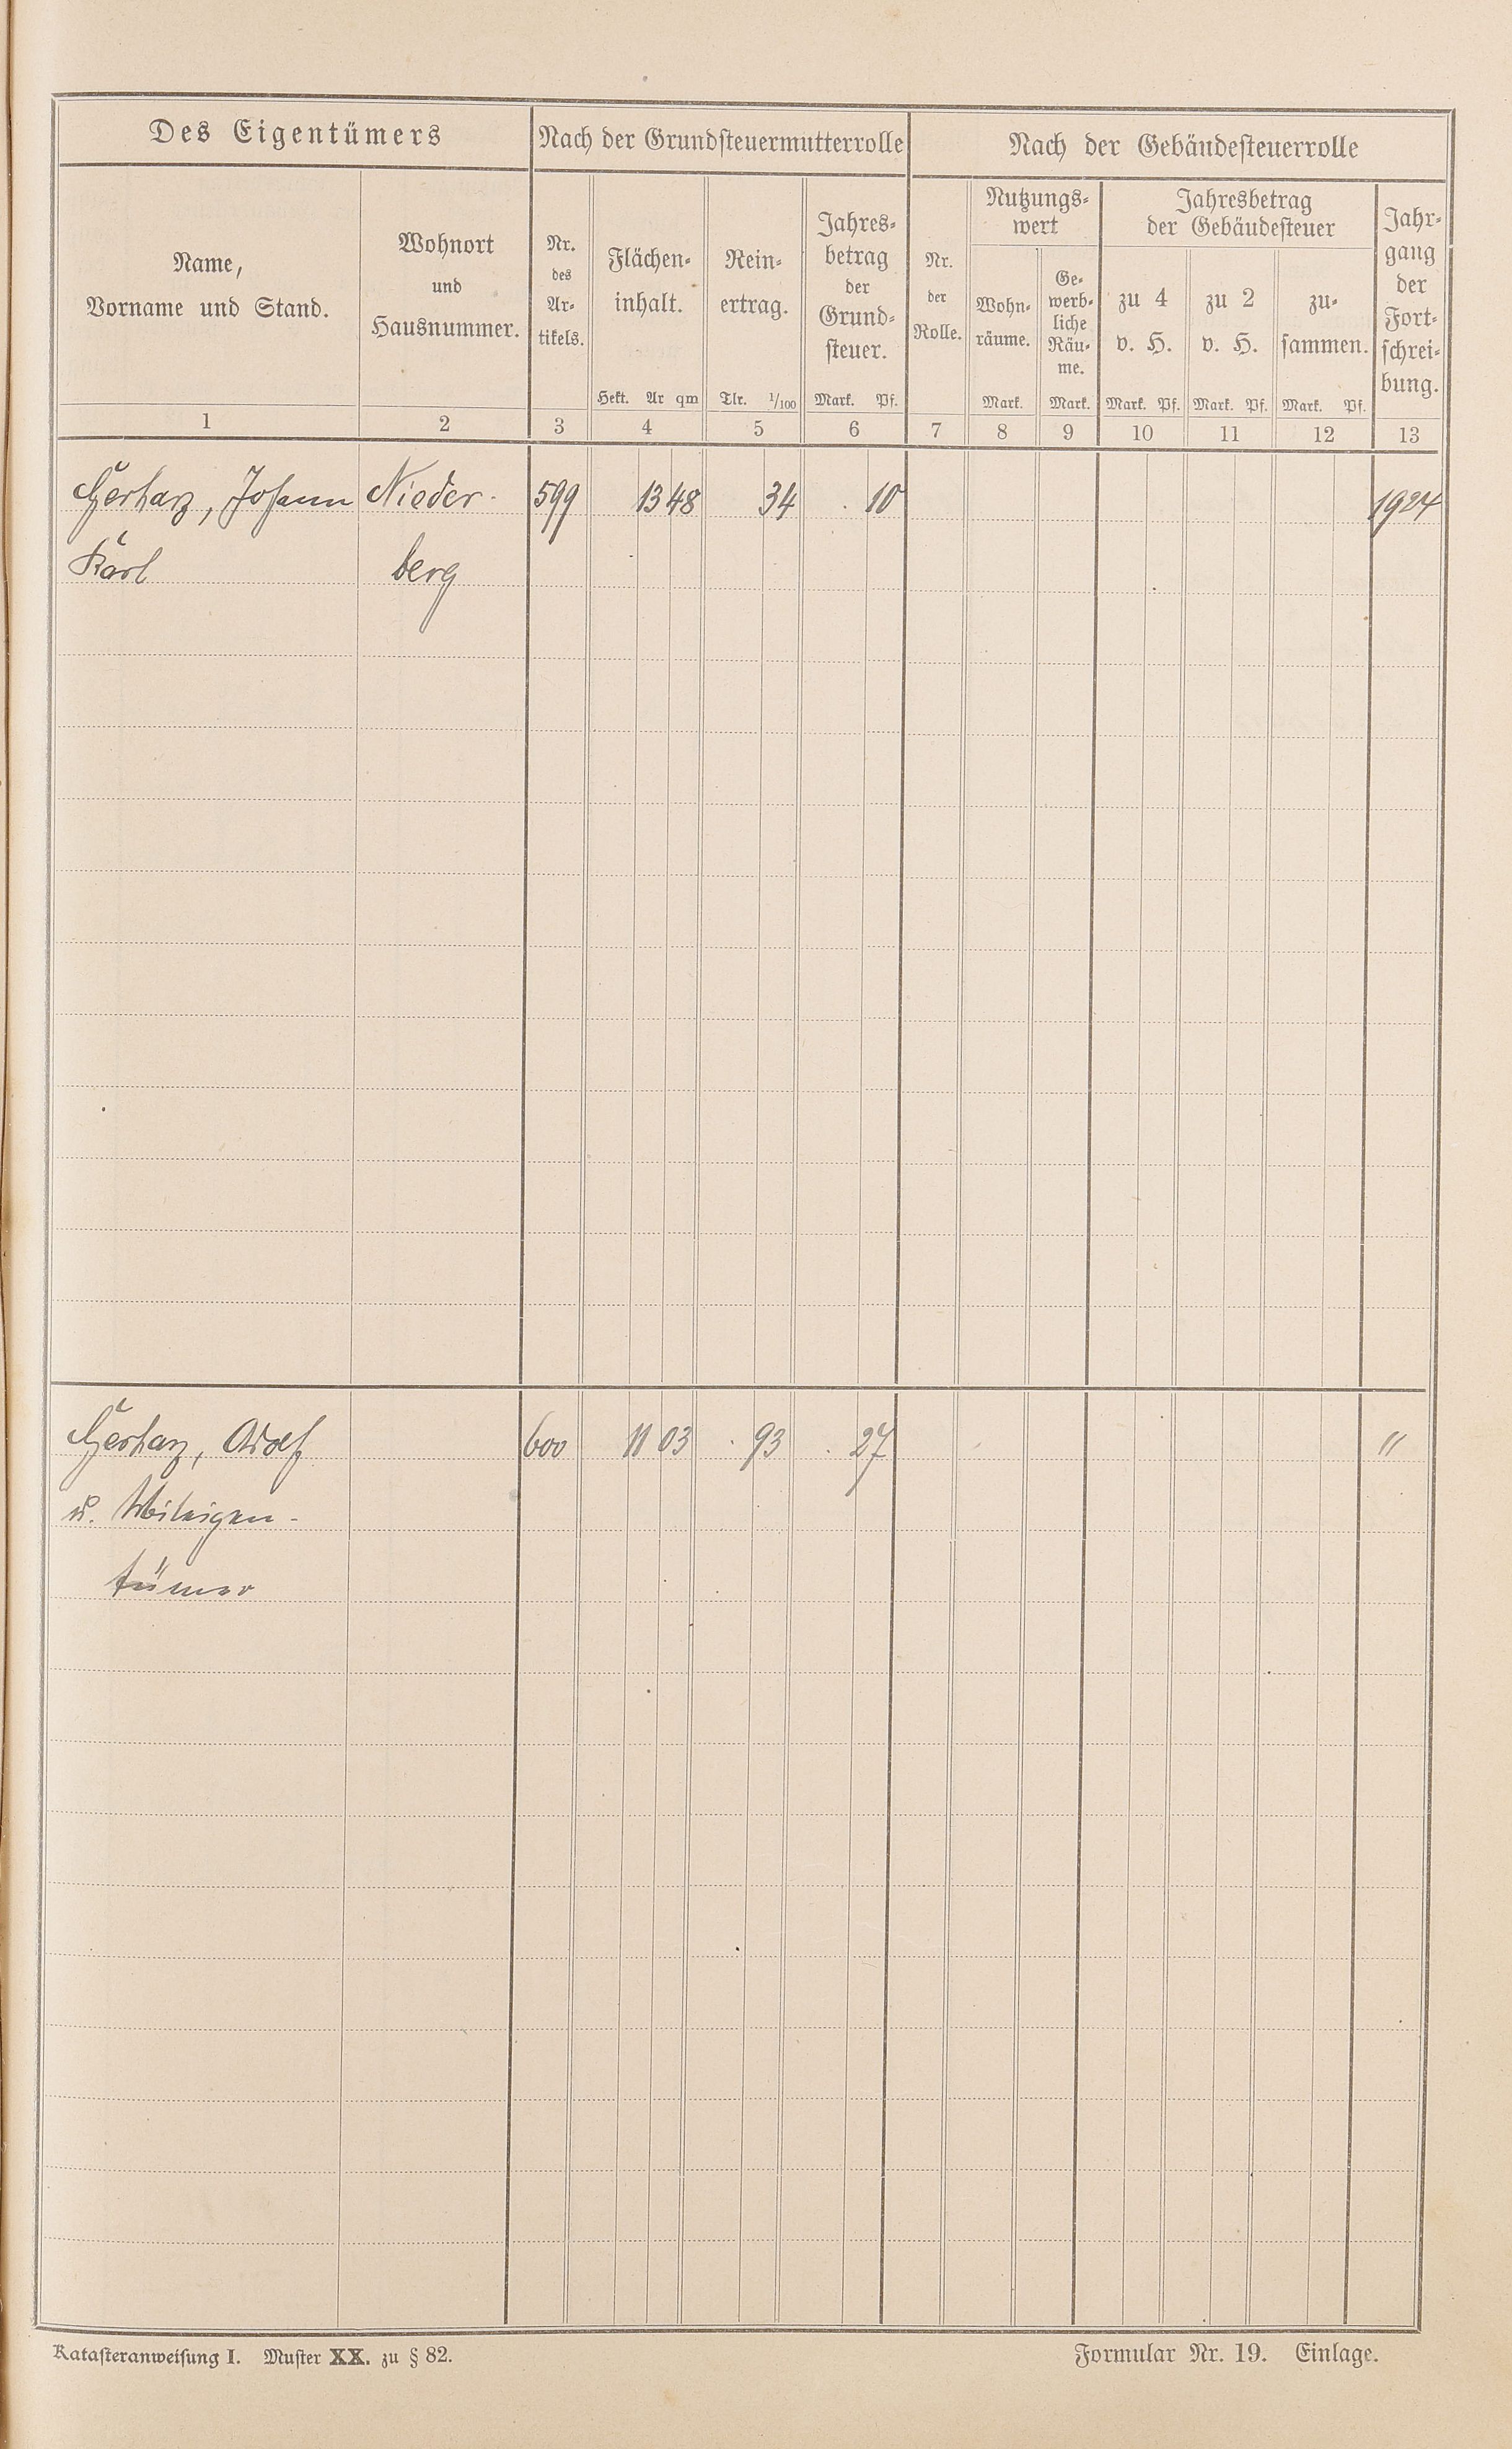 Des Eigentümers Nach der Grundsteuermutterrolle Nach der Gebäudesteuerrolle
Name,
Vorname und Stand.
Wohnort
und
Hausnummer.
Nr.
des
Ar-
tikels.
Flächen-
inhalt.
Hekt. Ar qm
Rein-
ertrag.
Tlr. 1/100
Jahres-
betrag
der
Grund-
steuer.
Mark. Pf.
Nr.
der
Rolle.
Nutzungs-
wert
Wohn-
räume.
Mark.
Ge-
werb-
liche
Räu-
me.
Mark.
Jahresbetrag
der Gebäudesteuer
zu 4
v. H.
Mark. Pf.
zu 2
v. H.
Mark. Pf.
zu-
sammen.
Mark. Pf.
Jahr-
gang
der
Fort-
schrei-
bung.
1 2 3 4 5 6 7 8 9 10 11 12 13
Gerharz, Johann Nieder- 599 13 48 34 . 10 1924
Karl berg
Gerharz, Adolf 600 11 03 . 93 . 27 "
u. Miteigen-
tümer
Katasteranweisung I. Muster XX. zu § 82. Formular Nr. 19. Einlage.